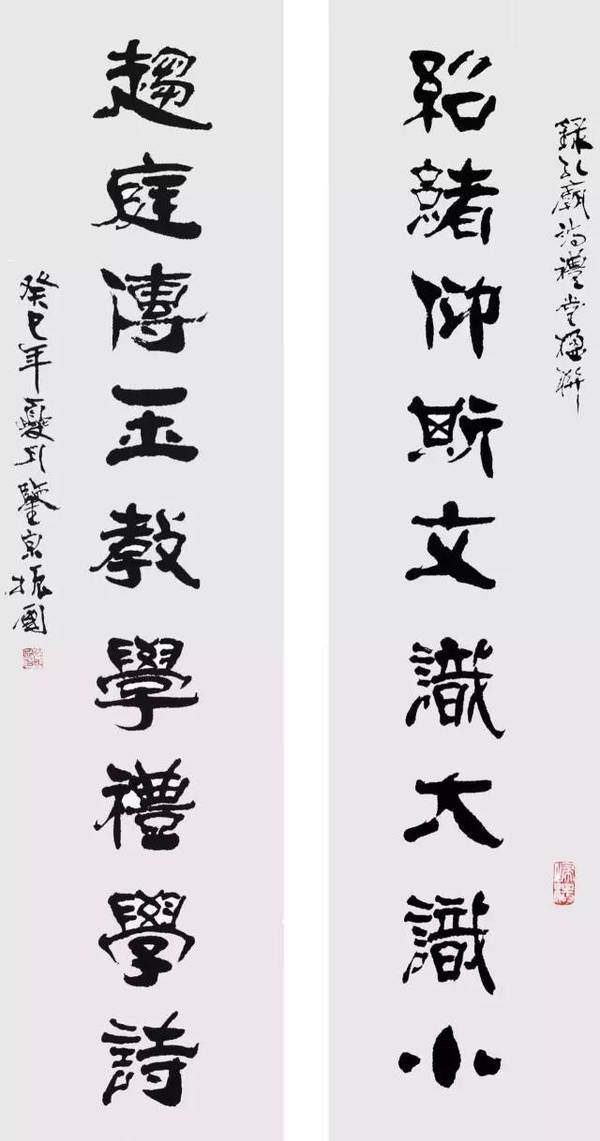 錄孔廟詩禮堂楹聯
紹緒仰斯文識大識小
趨庭傳至教學禮學詩
癸巳年夏月振國